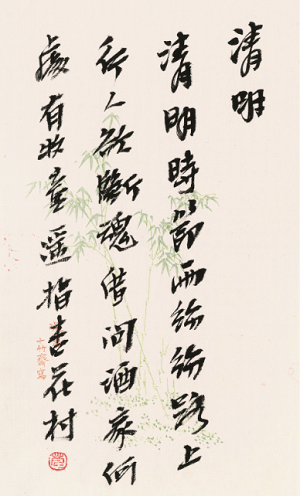 清明
清明時節雨紛紛路上
行人欲斷魂借問酒家何
處有牧童遥指杏花村